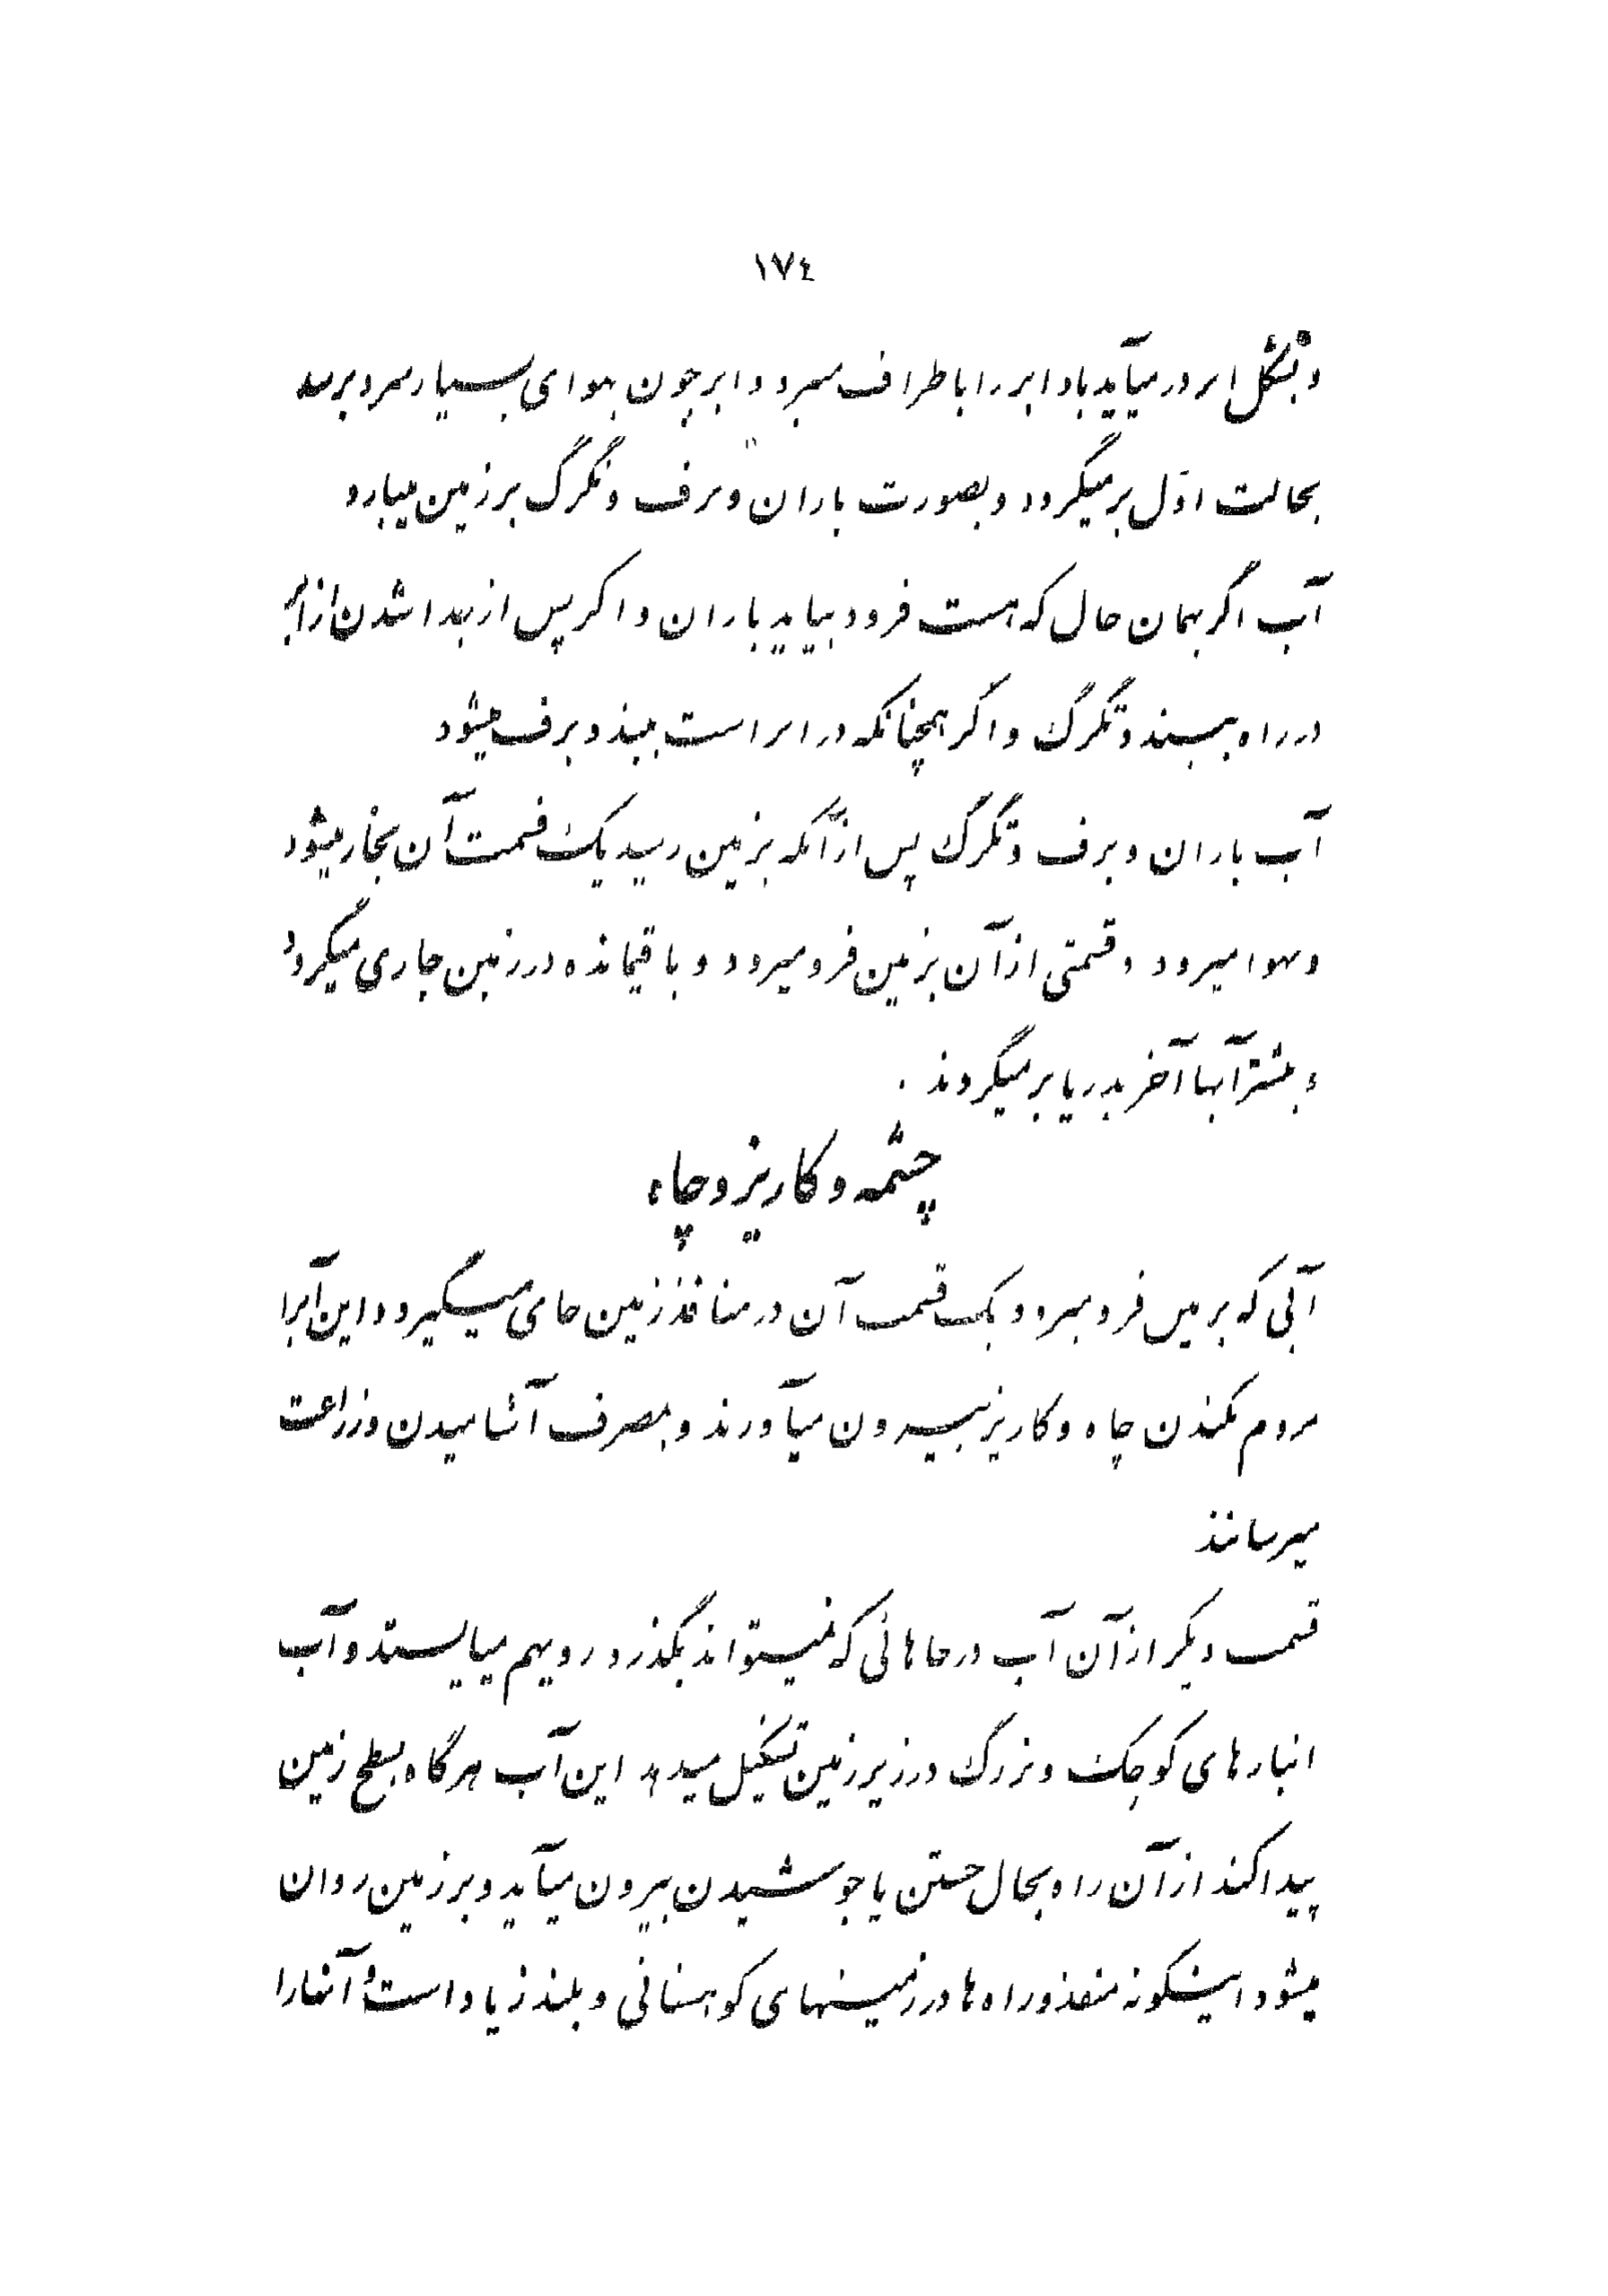 ۱۷۴
و بشکل ابر در میآید باد ابر را باطراف میبرد و ابر چون بهوای بسیار سرد برسد
بحالت اوّل برمیگردد و بصورت باران و برف و تگرگ بر زمین میبارد
آب اگر بهمان حال که هست فرود بیاید باران و اگر پس از جدا شدن از ابر
در راه ببندد تگرگ و اگر همچنانکه در ابر است ببندد برف میشود
آب باران و برف و تگرگ پس از آنکه بزمین رسید یک قسمت آن بخار میشود
و بهوا میرود و قسمتی از آن بزمین فرو میرود و باقیمانده در زمین جاری میگردد
و بیشتر آبها آخر بدریا بر میگردند .
چشمه و کاریز و چاه
آبی که بزمین فرو میرود یک قسمت آن در منافذ زمین جای میگیرد و این آبرا
مردم بکندن چاه و کاریز بیرون میآورند و بمصرف آشامیدن و زراعت
میرسانند
قسمت دیگر از آن آب در جاهائی که نمیتواند بگذرد رویهم میایستد و آب
انبارهای کوچک و بزرگ در زیر زمین تشکیل میدهد این آب هرگاه بسطح زمین
پیدا کند از آن راه بحال جستن یا جوشیدن بیرون میآید و بر زمین روان
میشود اینگونه منفذ و راه‌ها در زمینهای کوهستانی و بلند زیاد است آنها را